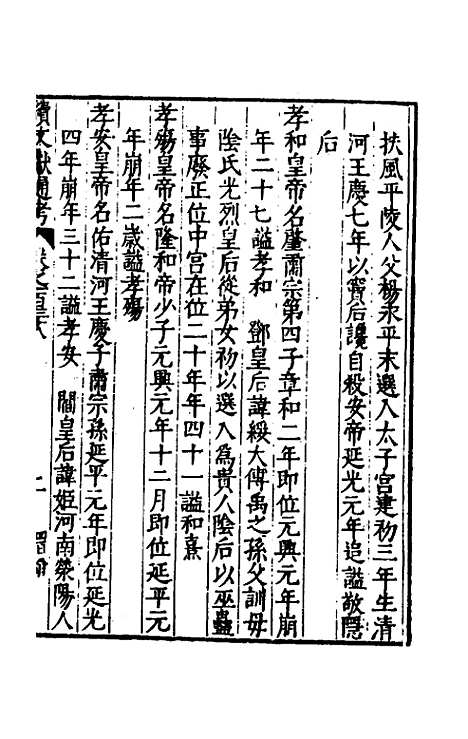 扶風平陵人父楊永平末選入太子宮建初三年生清
河王慶七年以竇后讒自殺安帝延光元年追謚敬隱
后
孝和皇帝名肇肅宗第四子章和二年即位元興元年崩
年二十七謚孝和　鄧皇后諱綏太傅禹之孫父訓母
陰氏光烈皇后從弟女初以選入為貴人陰后以巫蠱
事廢正位中宮在位二十年年四十一謚和熹
孝殤皇帝名隆和帝少子元興元年十二月即位延平元
年崩年二歲謚孝殤
孝安皇帝名佑清河王慶子肅宗孫延平元年即位延光
四年崩年三十二謚孝安　閻皇后諱姬河南滎陽人
續文獻通考